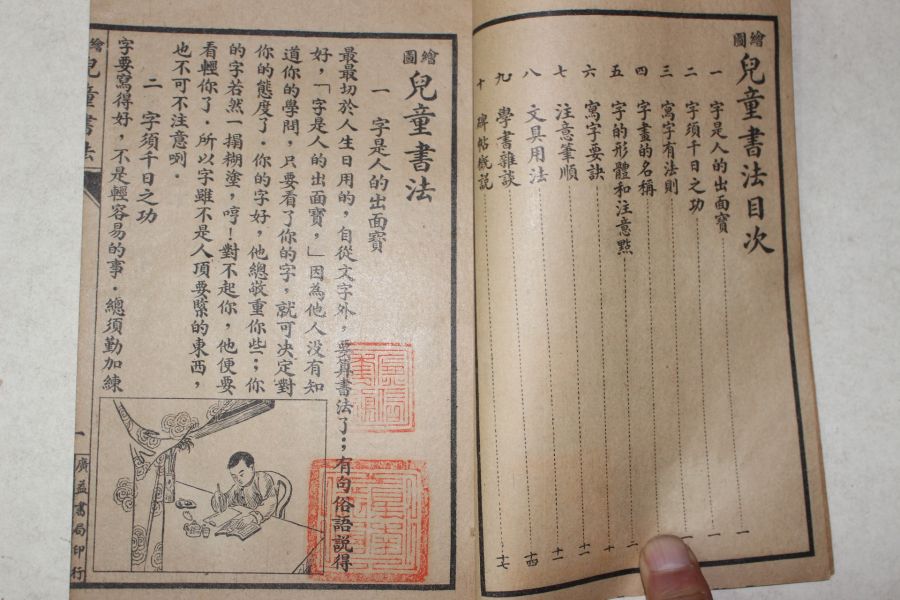 繪圖兒童書法目次
一 字是人的出面寶 一
二 字須千日之功 一
三 寫字有法則
四 字畫的名稱
五 字的形體和注意點 三
六 寫字要訣 十一
七 注意筆順 十二
八 文具用法 十四
九 學書雜談 十七
十 碑帖概説
繪圖兒童書法
一 字是人的出面寶
最最切於人生日用的，自從文字外，要算書法了；有句俗語説得
好，「字是人的出面寶，」因為他人没有知
道你的學問，只要看了你的字，就可决定對
你的態度了．你的字好，他總敬重你些；你
的字若然一搨糊塗，哼！對不起你，他便要
看輕你了．所以字雖不是人頂要緊的東西，
也不可不注意咧．
二 字須千日之功
字要寫得好，不是輕容易的事．總須勤加練
繪 兒童書法
一
廣益書局印行